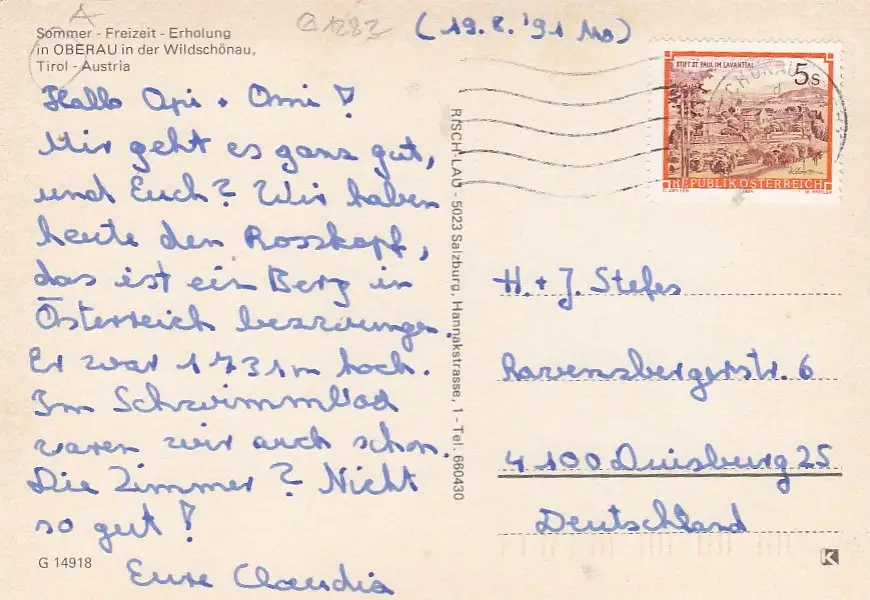 Sommer - Freizeit - Erholung
in OBERAU in der Wildschönau,
Tirol - Austria
A
G1282
(19.8.'91 Mo)
Hallo Opi + Omi!
Mir geht es ganz gut,
und Euch? Wir haben
heute den Rosskopf,
das ist ein Berg in
Österreich bezwungen.
Er war 1731m hoch.
Im Schwimmbad
waren wir auch schon.
Die Zimmer? Nicht
so gut!
Eure Claudia
G 14918
RISCH-LAU - 5023 Salzburg, Hannakstrasse, 1 - Tel. 660430
STIFT ST. PAUL IM LAVANTTAL
5s
REPUBLIK ÖSTERREICH
H. + J. Stefes
Ravensbergerstr. 6
4100 Duisburg 25
Deutschland
K